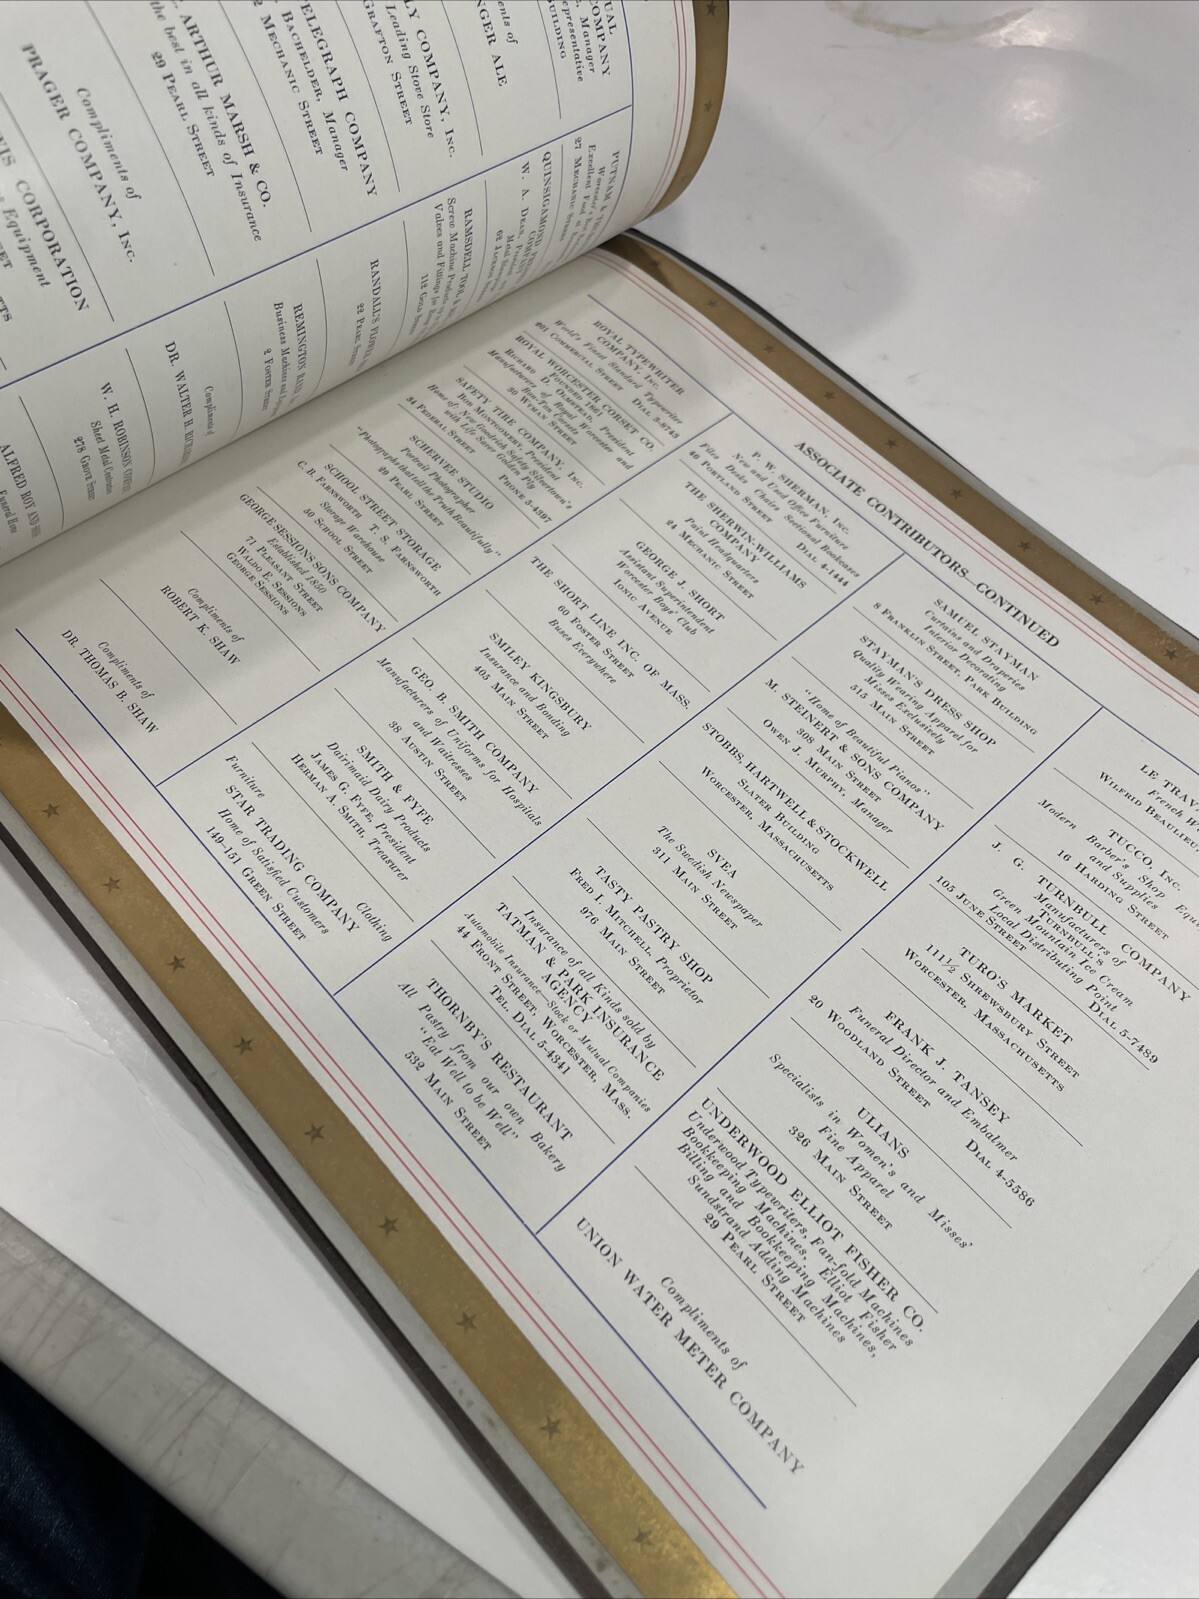 UAL
COMPANY
Manager
epresentative
BUILDING
ents of
NGER ALE
LY COMPANY, INC.
Leading Store Store
GRAFTON STREET
ELEGRAPH COMPANY
BACHELDER, Manager
MECHANIC STREET
ARTHUR MARSH & CO.
the best in all kinds of Insurance
29 PEARL STREET
Compliments of
PRAGER COMPANY, INC.
VIS CORPORATION
Equipment
PUTNAM &
27 MECHANIC STREET
QUINSIGAMOND
W. A. DEAN,
RAMSDELL TOOL &
Screw Machine Products
Valves and Fittings for
112 GOLD STREET
RANDALL'S FLOWER
22 PEARL STREET
REMINGTON RAND
Business Machines and
2 FOSTER STREET
Compliments of
DR. WALTER H. RICHARDS
W. H. ROBINSON COMPANY
Sheet Metal Contractors
278 GROVE STREET
ALFRED ROY AND
Funeral Home
ASSOCIATE CONTRIBUTORS, CONTINUED
ROYAL TYPEWRITER
COMPANY, INC.
World's Finest Standard Typewriter
401 COMMERCIAL STREET DIAL 5-8743
ROYAL WORCESTER CORSET CO.
FOUNDED 1861
RICHARD D. OLMSTEAD, President
Manufacturers of Royal Worcester and
Bon-Ton Corsets
30 WYMAN STREET
SAFETY TIRE COMPANY, INC.
BOB MONTGOMERY, President
Home of: New Goodrich Safety Silvertown's
with Life Saver Golden Ply
84 FEDERAL STREET PHONE 3-4597
SCHERVEE STUDIO
Portrait Photographer
29 PEARL STREET
"Photographs that tell the Truth Beautifully"
SCHOOL STREET STORAGE
C. B. FARNSWORTH T. S. FARNSWORTH
Storage Warehouse
30 SCHOOL STREET
GEORGE SESSIONS' SONS COMPANY
Established 1850
71 PLEASANT STREET
WALDO E. SESSIONS
GEORGE SESSIONS
Compliments of
ROBERT K. SHAW
Compliments of
DR. THOMAS B. SHAW
P. W. SHERMAN, INC.
New and Used Office Furniture
Files Desks Chairs Sectional Bookcases
46 PORTLAND STREET DIAL 4-1444
THE SHERWIN-WILLIAMS
COMPANY
Paint Headquarters
24 MECHANIC STREET
GEORGE J. SHORT
Assistant Superintendent
Worcester Boys' Club
IONIC AVENUE
THE SHORT LINE INC. OF MASS.
60 FOSTER STREET
Buses Everywhere
SMILEY KINGSBURY
Insurance and Bonding
405 MAIN STREET
GEO. B. SMITH COMPANY
Manufacturers of Uniforms for Hospitals
and Waitresses
38 AUSTIN STREET
SMITH & FYFE
Dairimaid Dairy Products
JAMES G. FYFE, President
HERMAN A. SMITH, Treasurer
Furniture Clothing
STAR TRADING COMPANY
Home of Satisfied Customers
149-151 GREEN STREET
SAMUEL STAYMAN
Curtains and Draperies
Interior Decorating
8 FRANKLIN STREET, PARK BUILDING
STAYMAN'S DRESS SHOP
Quality Wearing Apparel for
Misses Exclusively
515 MAIN STREET
"Home of Beautiful Pianos"
M. STEINERT & SONS COMPANY
308 MAIN STREET
OWEN J. MURPHY, Manager
STOBBS, HARTWELL & STOCKWELL
SLATER BUILDING
WORCESTER, MASSACHUSETTS
SVEA
The Swedish Newspaper
311 MAIN STREET
TASTY PASTRY SHOP
FRED I. MITCHELL, Proprietor
976 MAIN STREET
Insurance of all Kinds sold by
TATMAN & PARK INSURANCE
AGENCY
Automobile Insurance—Stock or Mutual Companies
44 FRONT STREET, WORCESTER, MASS.
TEL. DIAL 5-4341
THORNBY'S RESTAURANT
All Pastry from our own Bakery
"Eat Well to be Well"
532 MAIN STREET
LE TRAV
French W
WILFRID BEAULIEU
TUCCO, INC.
Modern Barber's Shop Equ
and Supplies
16 HARDING STREET
J. G. TURNBULL COMPANY
Manufacturers of
TURNBULL'S
Green Mountain Ice Cream
Local Distributing Point
105 JUNE STREET DIAL 5-7489
TURO'S MARKET
111½ SHREWSBURY STREET
WORCESTER, MASSACHUSETTS
FRANK J. TANSEY
Funeral Director and Embalmer
20 WOODLAND STREET DIAL 4-5586
ULIANS
Specialists in Women's and Misses'
Fine Apparel
326 MAIN STREET
UNDERWOOD ELLIOT FISHER CO.
Underwood Typewriters, Fan-fold Machines
Bookkeeping Machines, Elliot Fisher
Billing and Bookkeeping Machines,
Sundstrand Adding Machines
29 PEARL STREET
Compliments of
UNION WATER METER COMPANY